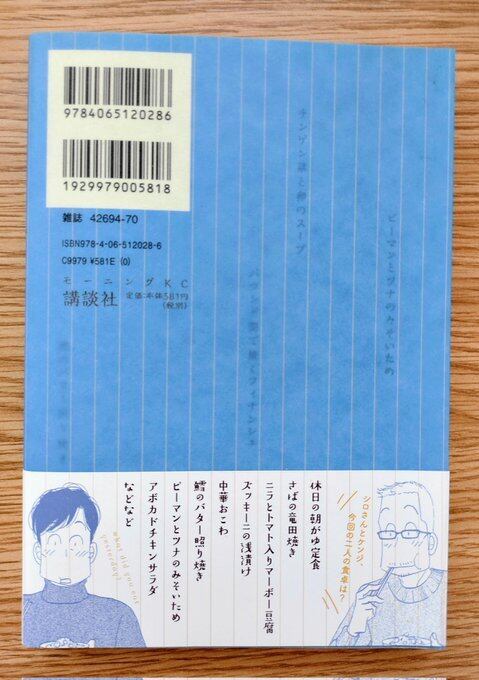 9784065120286
1929979005818
雑誌 42694-70
ISBN978-4-06-512028-6
C9979 ¥581E (0)
モーニングKC
講談社
定価:本体581円
(税別)
ピーマンとツナのみそいため
チンゲン菜と卵のスープ
シロさんとケンジ、
今回の二人の食卓は?
休日の朝がゆ定食
さばの竜田焼き
ニラとトマト入りマーボー豆腐
ズッキーニの浅漬け
中華おこわ
鱈のバター照り焼き
ピーマンとツナのみそいため
アボカドチキンサラダ
などなど
what did you eat
yesterday?